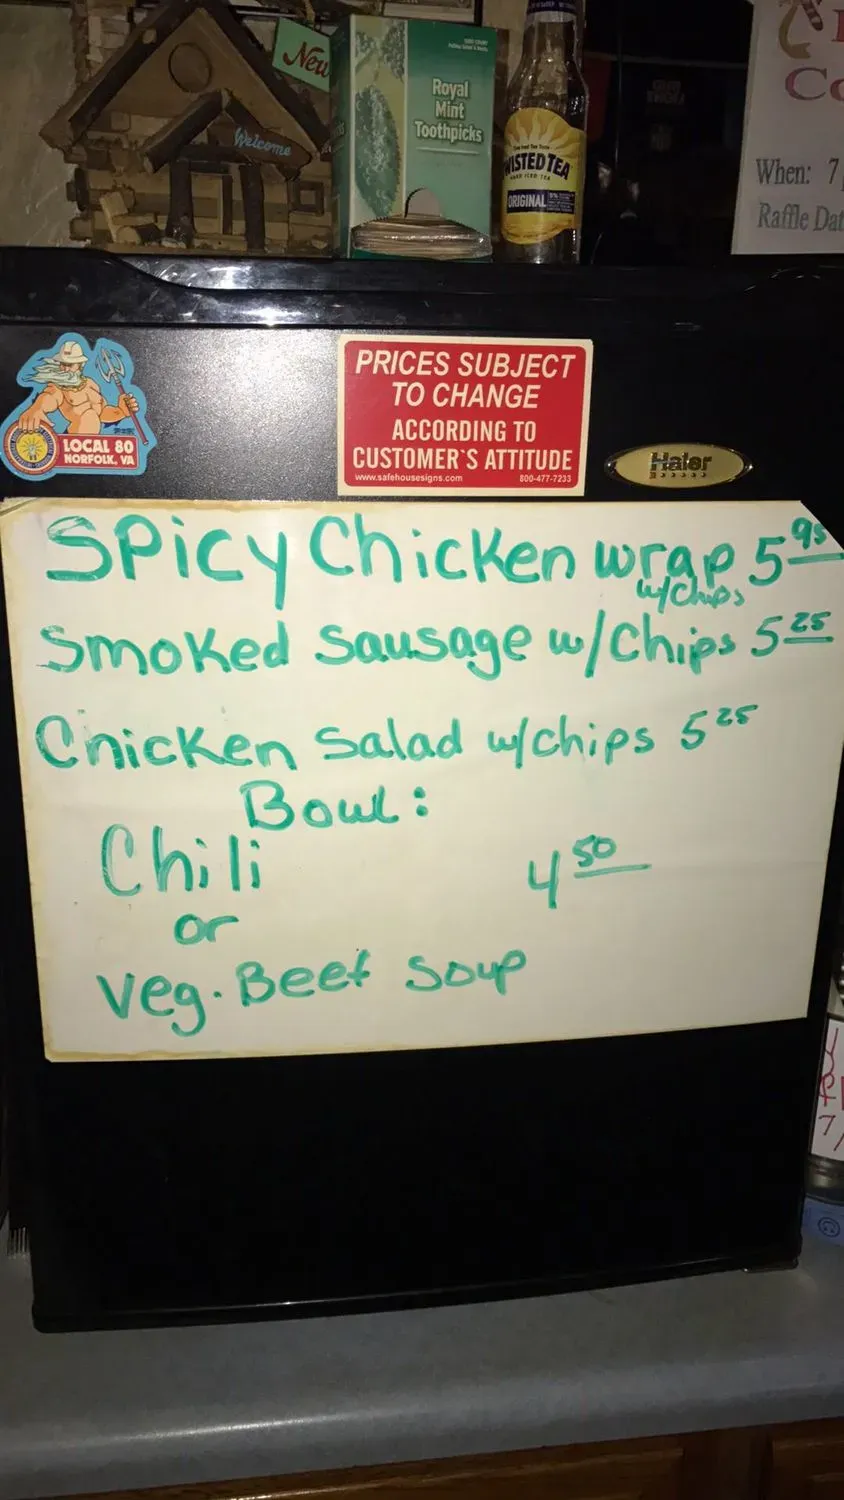 New
Welcome
Royal
Mint
Toothpicks
TWISTED TEA
HARD ICED TEA
ORIGINAL 5%
Co
When: 7
Raffle Dat
LOCAL 80
NORFOLK, VA
PRICES SUBJECT
TO CHANGE
ACCORDING TO
CUSTOMER`S ATTITUDE
www.safehousesigns.com 800-477-7233
Haier
SPicy Chicken wrap 5 95
w/Chips
Smoked Sausage w/Chips 5 25
Chicken Salad w/chips 5 25
Bowl:
Chili 4 50
or
Veg. Beef Soup